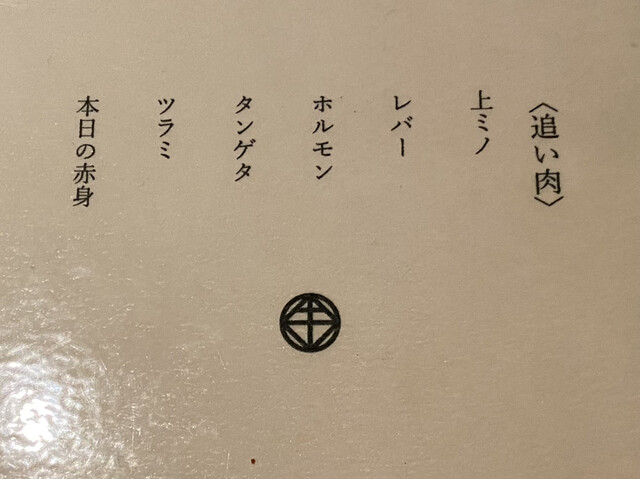 〈追い肉〉
上ミノ
レバー
ホルモン
タンゲタ
ツラミ
本日の赤身